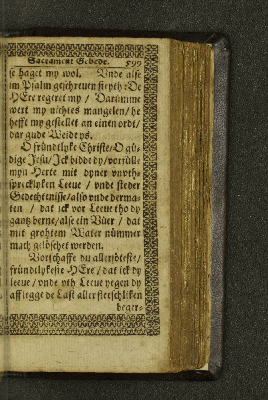 Sacrament Gebede. 599
se haget my wol. Vnde alse
im Psalm geschreuen steyth: De
HEre regeret my / Darümme
wert my nichtes mangelen / he
hefft my gestellet an einen ordt /
dar gude Weide ys.
O fründtlyke Christe / O gü-
dige Jesu / Ick bidde dy / vorfülle
myn Herte mit dyner vnvth-
sprecklyken Leeue / vnde steder
Gedechtenisse / also vnde derma-
ten / dat ick vor Leeue tho dy
gantz berne / alse ein Vüer / dat
mit grohtem Water nümmer
mach geldschet werden.
Vorschaffe du allersöteste /
fründtlykeste HEre / dat ick dy
leeue / vnde vth Leeue yegen dy
afflegge de Last aller fleeschliken
beger-